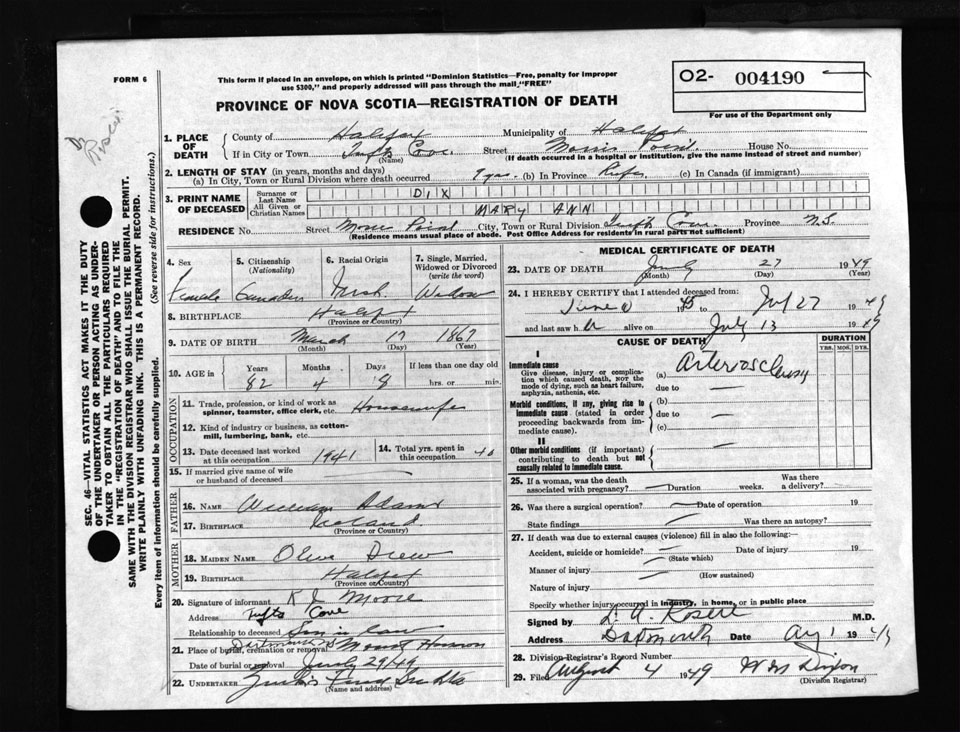 FORM 6
This form if placed in an envelope, on which is printed "Dominion Statistics—Free, penalty for improper
use $300," and properly addressed will pass through the mail "FREE"
PROVINCE OF NOVA SCOTIA—REGISTRATION OF DEATH
O2- 004190
For use of the Department only
SEC. 46—VITAL STATISTICS ACT MAKES IT THE DUTY
OF THE UNDERTAKER OR PERSON ACTING AS UNDER-
TAKER TO OBTAIN ALL THE PARTICULARS REQUIRED
IN THE "REGISTRATION OF DEATH" AND TO FILE THE
SAME WITH THE DIVISION REGISTRAR WHO SHALL ISSUE THE BURIAL PERMIT.
WRITE PLAINLY WITH UNFADING INK. THIS IS A PERMANENT RECORD.
Every item of information should be carefully supplied. (See reverse side for instructions.)
1. PLACE OF DEATH
County of Halifax Municipality of Halifax
If in City or Town Tufts Cove Street Morris Point House No.
(Name) (If death occurred in a hospital or institution, give the name instead of street and number)
2. LENGTH OF STAY (in years, months and days)
(a) In City, Town or Rural Division where death occurred 9 yrs. (b) In Province Life (c) In Canada (if immigrant)
3. PRINT NAME OF DECEASED
Surname or Last Name DIX
All Given or Christian Names MARY ANN
RESIDENCE No. Street Point City, Town or Rural Division Tufts Cove Province N.S.
(Residence means usual place of abode. Post Office Address for residents in rural parts not sufficient)
4. Sex Female
5. Citizenship (Nationality) Canadian
6. Racial Origin Irish
7. Single, Married, Widowed or Divorced (write the word) Widow
8. BIRTHPLACE Halifax
(Province or Country)
9. DATE OF BIRTH March 17 1867
(Month) (Day) (Year)
10. AGE in Years 82 Months 4 Days If less than one day old hrs. or min.
OCCUPATION
11. Trade, profession, or kind of work as spinner, teamster, office clerk, etc. Housewife
12. Kind of industry or business, as cotton-mill, lumbering, bank, etc.
13. Date deceased last worked at this occupation 1941
14. Total yrs. spent in this occupation 40
15. If married give name of wife or husband of deceased —
FATHER
16. NAME William Adams
17. BIRTHPLACE Ireland
(Province or Country)
MOTHER
18. MAIDEN NAME Olive Drew
19. BIRTHPLACE Halifax
(Province or Country)
20. Signature of informant R J Moore
Address Tufts Cove
Relationship to deceased Son in law
21. Place of burial, cremation or removal Dartmouth NS Mount Hermon
Date of burial or removal July 29/49
22. UNDERTAKER
(Name and address)
MEDICAL CERTIFICATE OF DEATH
23. DATE OF DEATH July 27 1949
(Month) (Day) (Year)
24. I HEREBY CERTIFY that I attended deceased from:
June 45 to July 27 1949
and last saw h er alive on July 13 1949
CAUSE OF DEATH
DURATION
YRS. MOS. DYS.
I
Immediate cause
Give disease, injury or complication which caused death, NOT the mode of dying, such as heart failure, asphyxia, asthenia, etc.
(a) Arteriosclerosis
due to —
Morbid conditions, if any, giving rise to immediate cause. (stated in order proceeding backwards from immediate cause).
(b) —
due to —
(c) —
II
Other morbid conditions (if important) contributing to death but not causally related to immediate cause. —
25. If a woman, was the death associated with pregnancy? — Duration weeks. Was there a delivery?
26. Was there a surgical operation? — Date of operation 19
State findings — Was there an autopsy?
27. If death was due to external causes (violence) fill in also the following:
Accident, suicide or homicide? — Date of injury 19
(State which)
Manner of injury —
(How sustained)
Nature of injury —
Specify whether injury occurred in industry, in home, or in public place
Signed by M.D.
Address Dartmouth Date Aug 1 1949
28. Division Registrar's Record Number
29. Filed August 4 1949 Dixon
(Division Registrar)